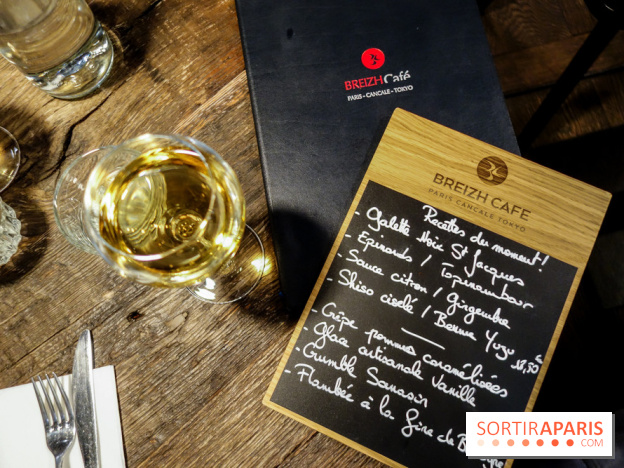 BREIZH Café
PARIS - CANCALE - TOKYO
BREIZH CAFE
PARIS CANCALE TOKYO
Recettes du moment!
- Galette Noix St Jacques
- Epinards / Topinambour
- Sauce citron / Gingembre
- Shiso ciselé / Beurre Yuzu 18,50€
- Crêpe pommes caramélisées
- Glace artisanale Vanille
- Crumble Sarrasin
- Flambée à la
SORTIRAPARIS
.COM